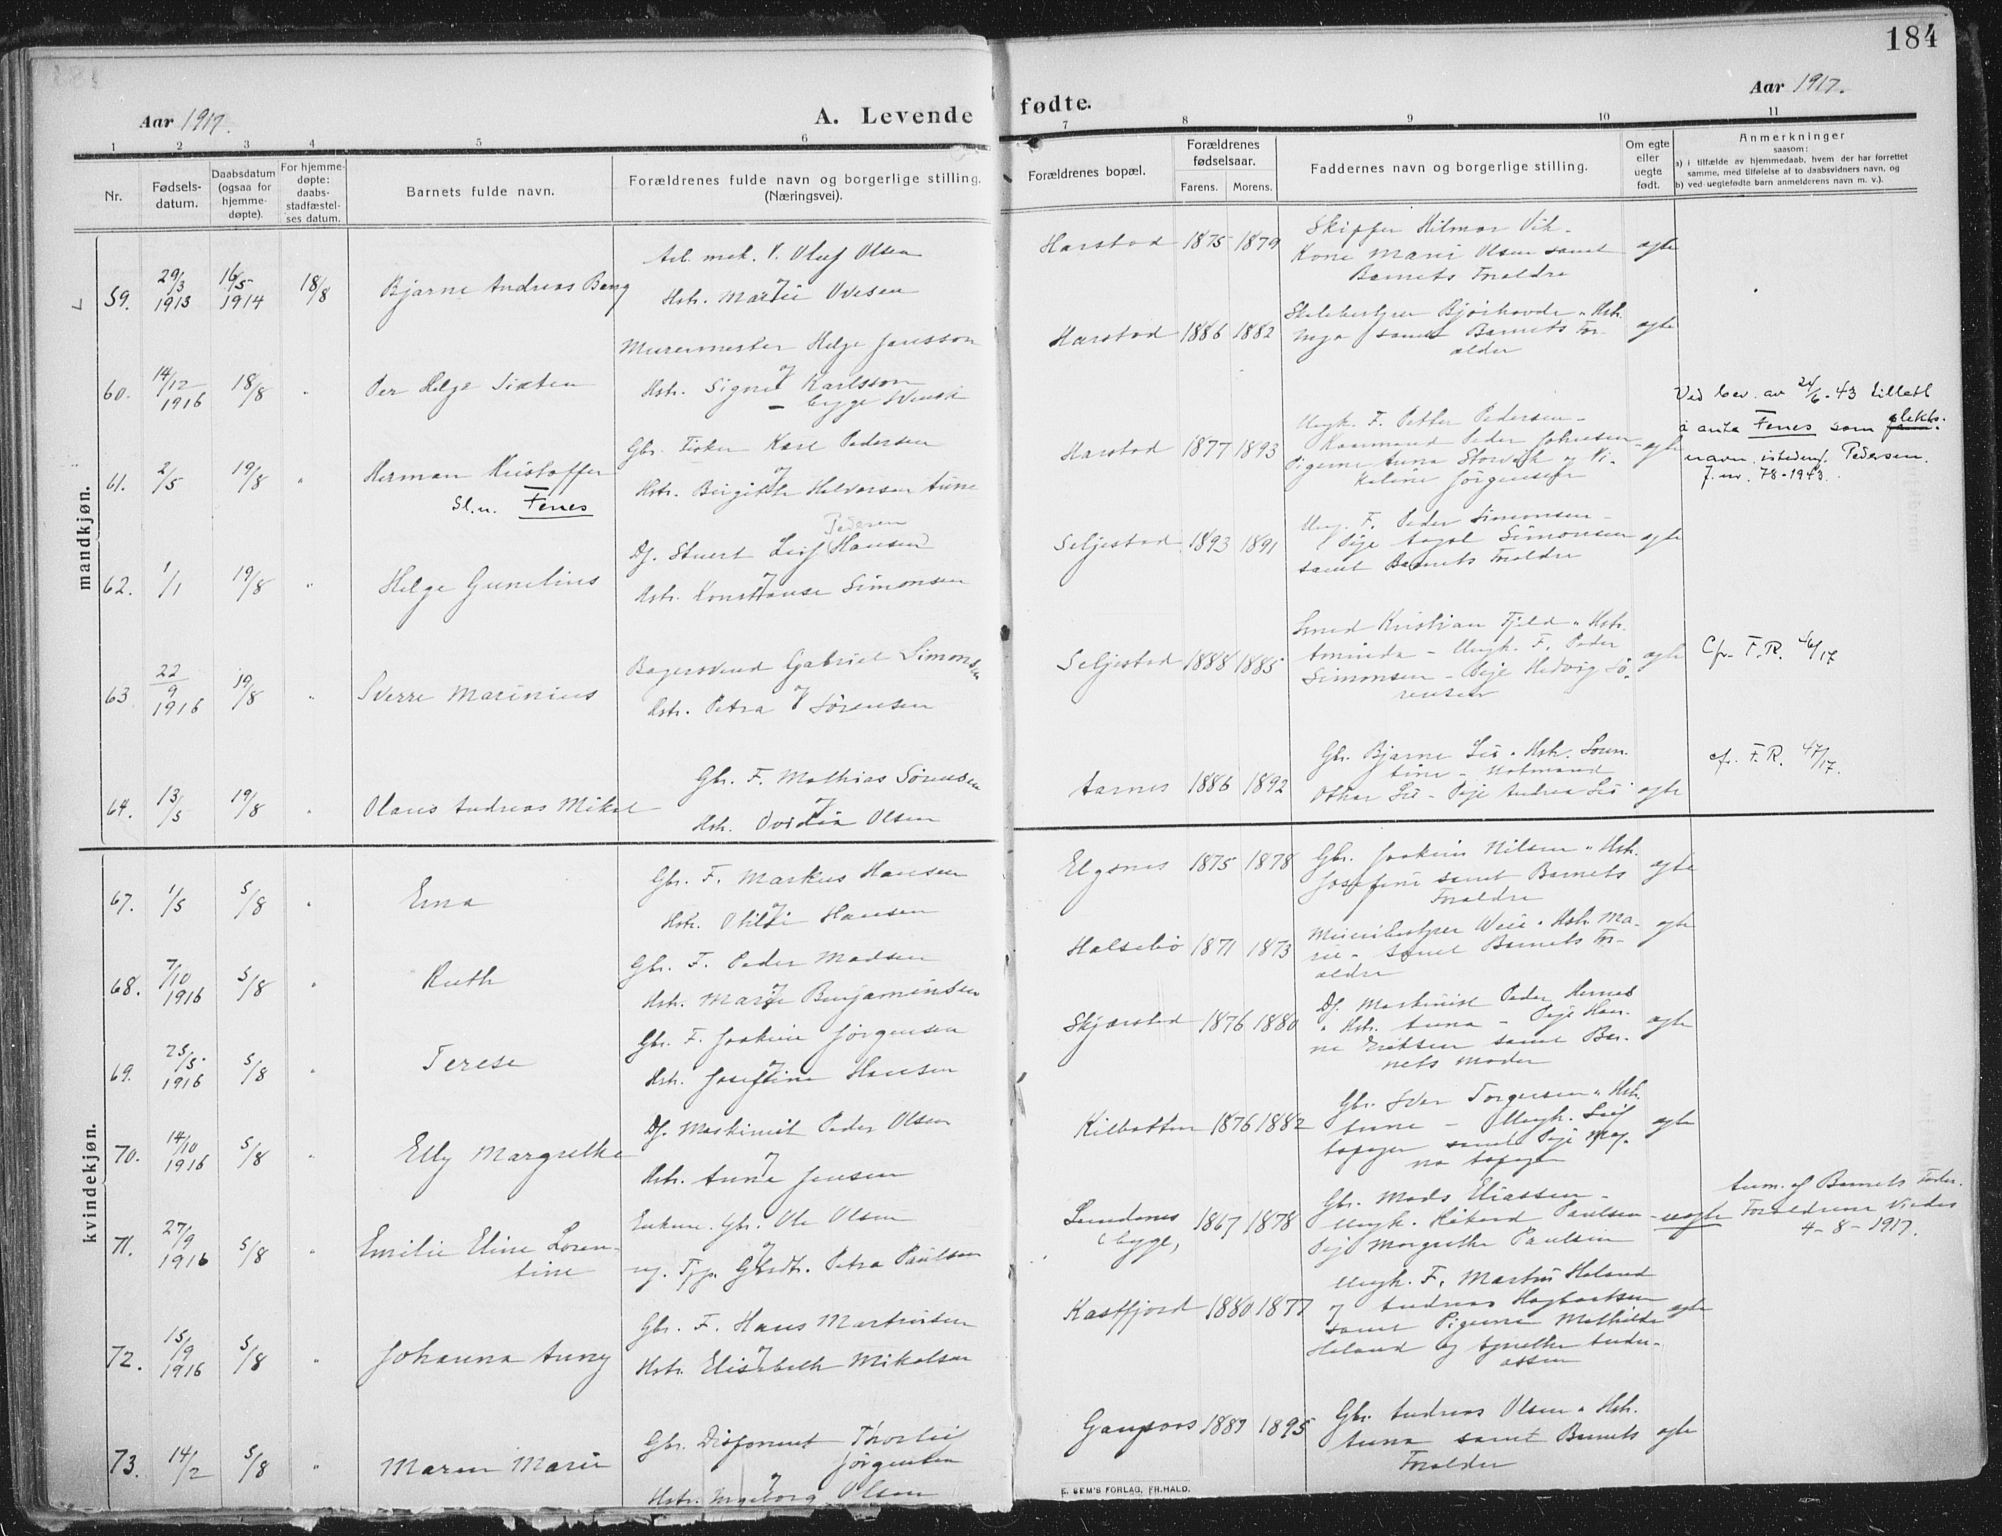 184
Aar 1917.
A. Levende fødte.
Aar 1917.
1 2 3 4 5 6 7 8 9 10 11
Nr.
Fødsels-
datum.
Daabsdatum
(ogsaa for
hjemme-
døpte).
For hjemme-
døpte:
daabs-
stadfæstel-
ses datum.
Barnets fulde navn.
Forældrenes fulde navn og borgerlige stilling.
(Næringsvei).
Forældrenes bopæl.
Forældrenes
fødselsaar.
Farens. Morens.
Faddernes navn og borgerlige stilling.
Om egte
eller
uegte
født.
Anmerkninger
saasom:
a) i tilfælde av hjemmedaab, hvem der har forrettet
samme, med tilføielse af to daabsvidners navn, og
b) ved uegtefødte barn anmelderens navn m. v.).
mandkjøn.
59. 29/3 1913 16/5 1914 18/8 Bjarne Andreas Bang
Arb. mek. V. Oluf Olsen
Hstr. Marie Ovesen
Harstad 1875 1879
Skipper Hilmar Vik -
Kone Marie Olsen samt
Barnets Forældre
egte
60. 14/12 1916 18/8 " Per Helge Sixten
Murermester Helge Jansson
Hstr. Signe Karlsson
- begge svensk
Harstad 1886 1882
samt Barnets For-
ældre
egte
61. 2/5 19/8 " Herman Kristoffer
Sl.n. Fenes
Gbr. Fisker Karl Pedersen
Hstr. Birgitte Halvorsen Aune
Harstad 1877 1893
Ungk. F. Petter Pedersen -
Pigerne Anna Storvik og Vi-
koline Jørgensen
egte
Ved bev. av 24/6-43 tillatt
å anta Fenes som slekts-
navn istedenf. Pedersen.
J.nr. 78-1943.
62. 1/1 19/8 " Helge Gunelius
Pedersen
Df. Stuert Leif Hansen
Hstr. Konstanse Simonsen
Seljestad 1893 1891
Ung. F. Peder Simonsen -
Pije Aagot Simonsen
samt Barnets Forældre
egte
63 22/9 1916 19/8 " Sverre Marinius
Bagersvend Gabriel Simonsen
Hstr. Petra Sørensen
Seljestad 1888 1885
Smed Kristian Fjeld " Hstr.
Aminda - Ungk. F. Peder
Simonsen - Pije Hedvig Sø-
rensen
egte
Cfr. F.R. 46/17
64. 13/5 19/8 " Olaus Andreas Mikal
Gbr. F. Mathias Sørensen
Hstr. Ovidia Olsen
Aarnes 1886 1892
Gbr. Bjarne Lie " Hstr. Soren-
tine - Notmand
Othar Lie - Pije Andrea Lie
egte
cfr. F.R. 47/17.
kvindekjøn.
67. 1/5 5/8 " Erna
Gbr. F. Markus Hansen
Hstr. Otilie Hansen
Elgsnes 1875 1878
Gbr. Joakim Nilsen " Hstr.
Josefine samt Barnets
Forældre
egte
68. 7/10 1916 5/8 " Ruth
Gbr. F. Peder Madsen
Hstr. Marie Benjaminsen
Halsebø 1871 1873
Meieribestyrer Weie " Hstr. Ma-
rie - samt Barnets For-
ældre
egte
69. 25/5 1916 5/8 " Terese
Gbr. F. Joakim Jørgensen
Hstr. Josefine Hansen
Skjærstad 1876 1880
Df. Maskinist Peder Hernes
" Hstr. Anna - Pije Han-
na Eriksen samt Bar-
nets Moder
egte
70. 14/10 1916 5/8 " Elly Margrethe
Df. Maskinist Peder Olsen
Hstr. Anna Jensen
Kilbotten 1876 1882
Gbr. Iver Torgersen " Hstr.
Anne - Ungk. Leif
egte
71. 27/9 1916 5/8 " Emilie Eline Loren-
tine
Enkem. Gbr. Ole Olsen
ug. Tjp. Gbrdt. Petra Paulsen
Lundenes
(begge)
1867 1878
Gbr. Mads Eliassen -
Ungk. Rikard Paulsen -
Pije Margrethe Paulsen
uegte
Anm. af Barnets Fader.
Forældrene Viedes
4-8-1917.
72. 15/9 1916 5/8 " Johanna Anny
Gbr. F. Hans Martinsen
Hstr. Elisabeth Mikalsen
Kastfjord 1880 1877
Ungk. F. Martin Heland
og Andreas Hagbartsen
samt Pigerne Mathilde
Heland og Agnethe Andre-
assen
egte
73. 14/2 5/8 " Maren Marie
Gbr. Disponent Thorleif
Jørgensen
Hstr. Ingeborg Olsen
Gansaas 1887 1895
Gbr. Andreas Olsen " Hstr.
Anna samt Barnets
Forældre
egte
E. SEM'S FORLAG, FR.HALD.